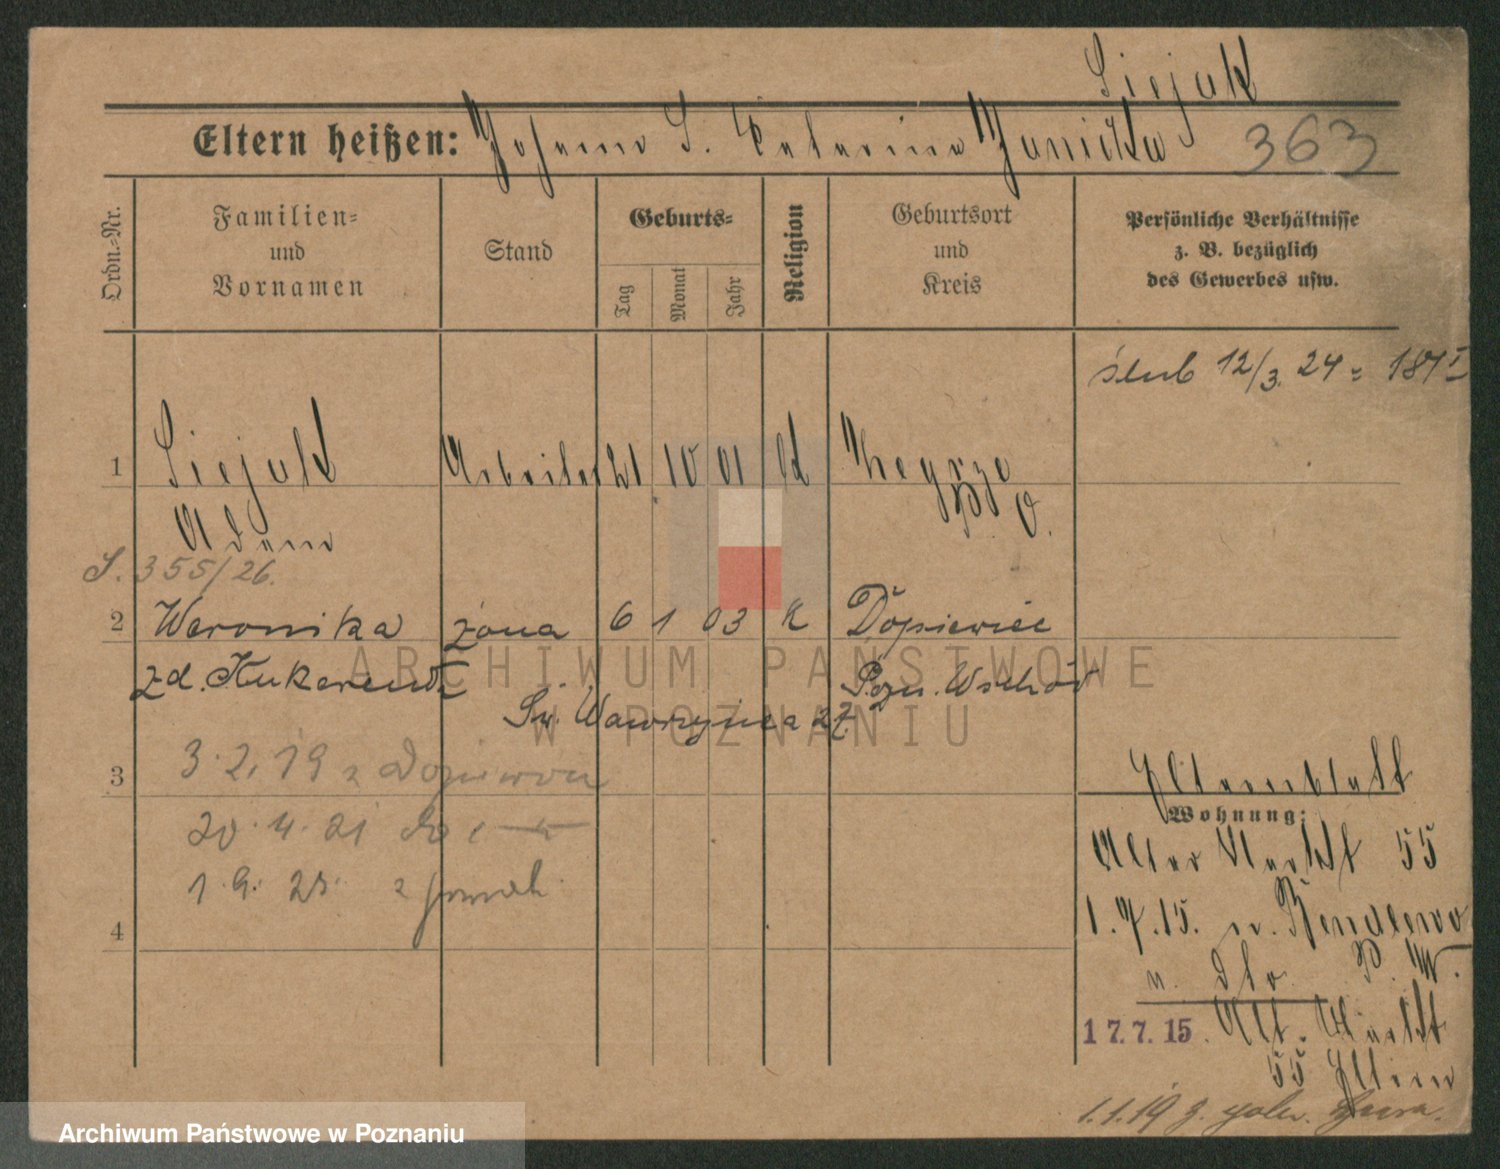 Siejak
Eltern heißen: Johann S. Katarina Janicka
363
Ordn.-Nr.
Familien-
und
Vornamen
Stand
Geburts-
Tag
Monat
Jahr
Religion
Geburtsort
und
Kreis
Persönliche Verhältnisse
z. B. bezüglich
des Gewerbes usw.
ślub 12/3. 24 = 187 I
1 Siejak Arbeiter 21 10 01 kt Zhegrze
Adam P. O.
S. 355/26.
2 Weronika żona 6 1 03 k Dopiewiec
zd. Pozn. Wschód
Św. Wawrzyńca 27.
3
3. 2. 19 z
20. 4. 21 do
1. 9. 23. z
4
Elternblatt
Wohnung:
Alter Markt 55
1. 7. 15. n.
P. W.
17. 7. 15. Alt. Markt
55 Eltern
1.1.19
ARCHIWUM PAŃSTWOWE
W POZNANIU
Archiwum Państwowe w Poznaniu